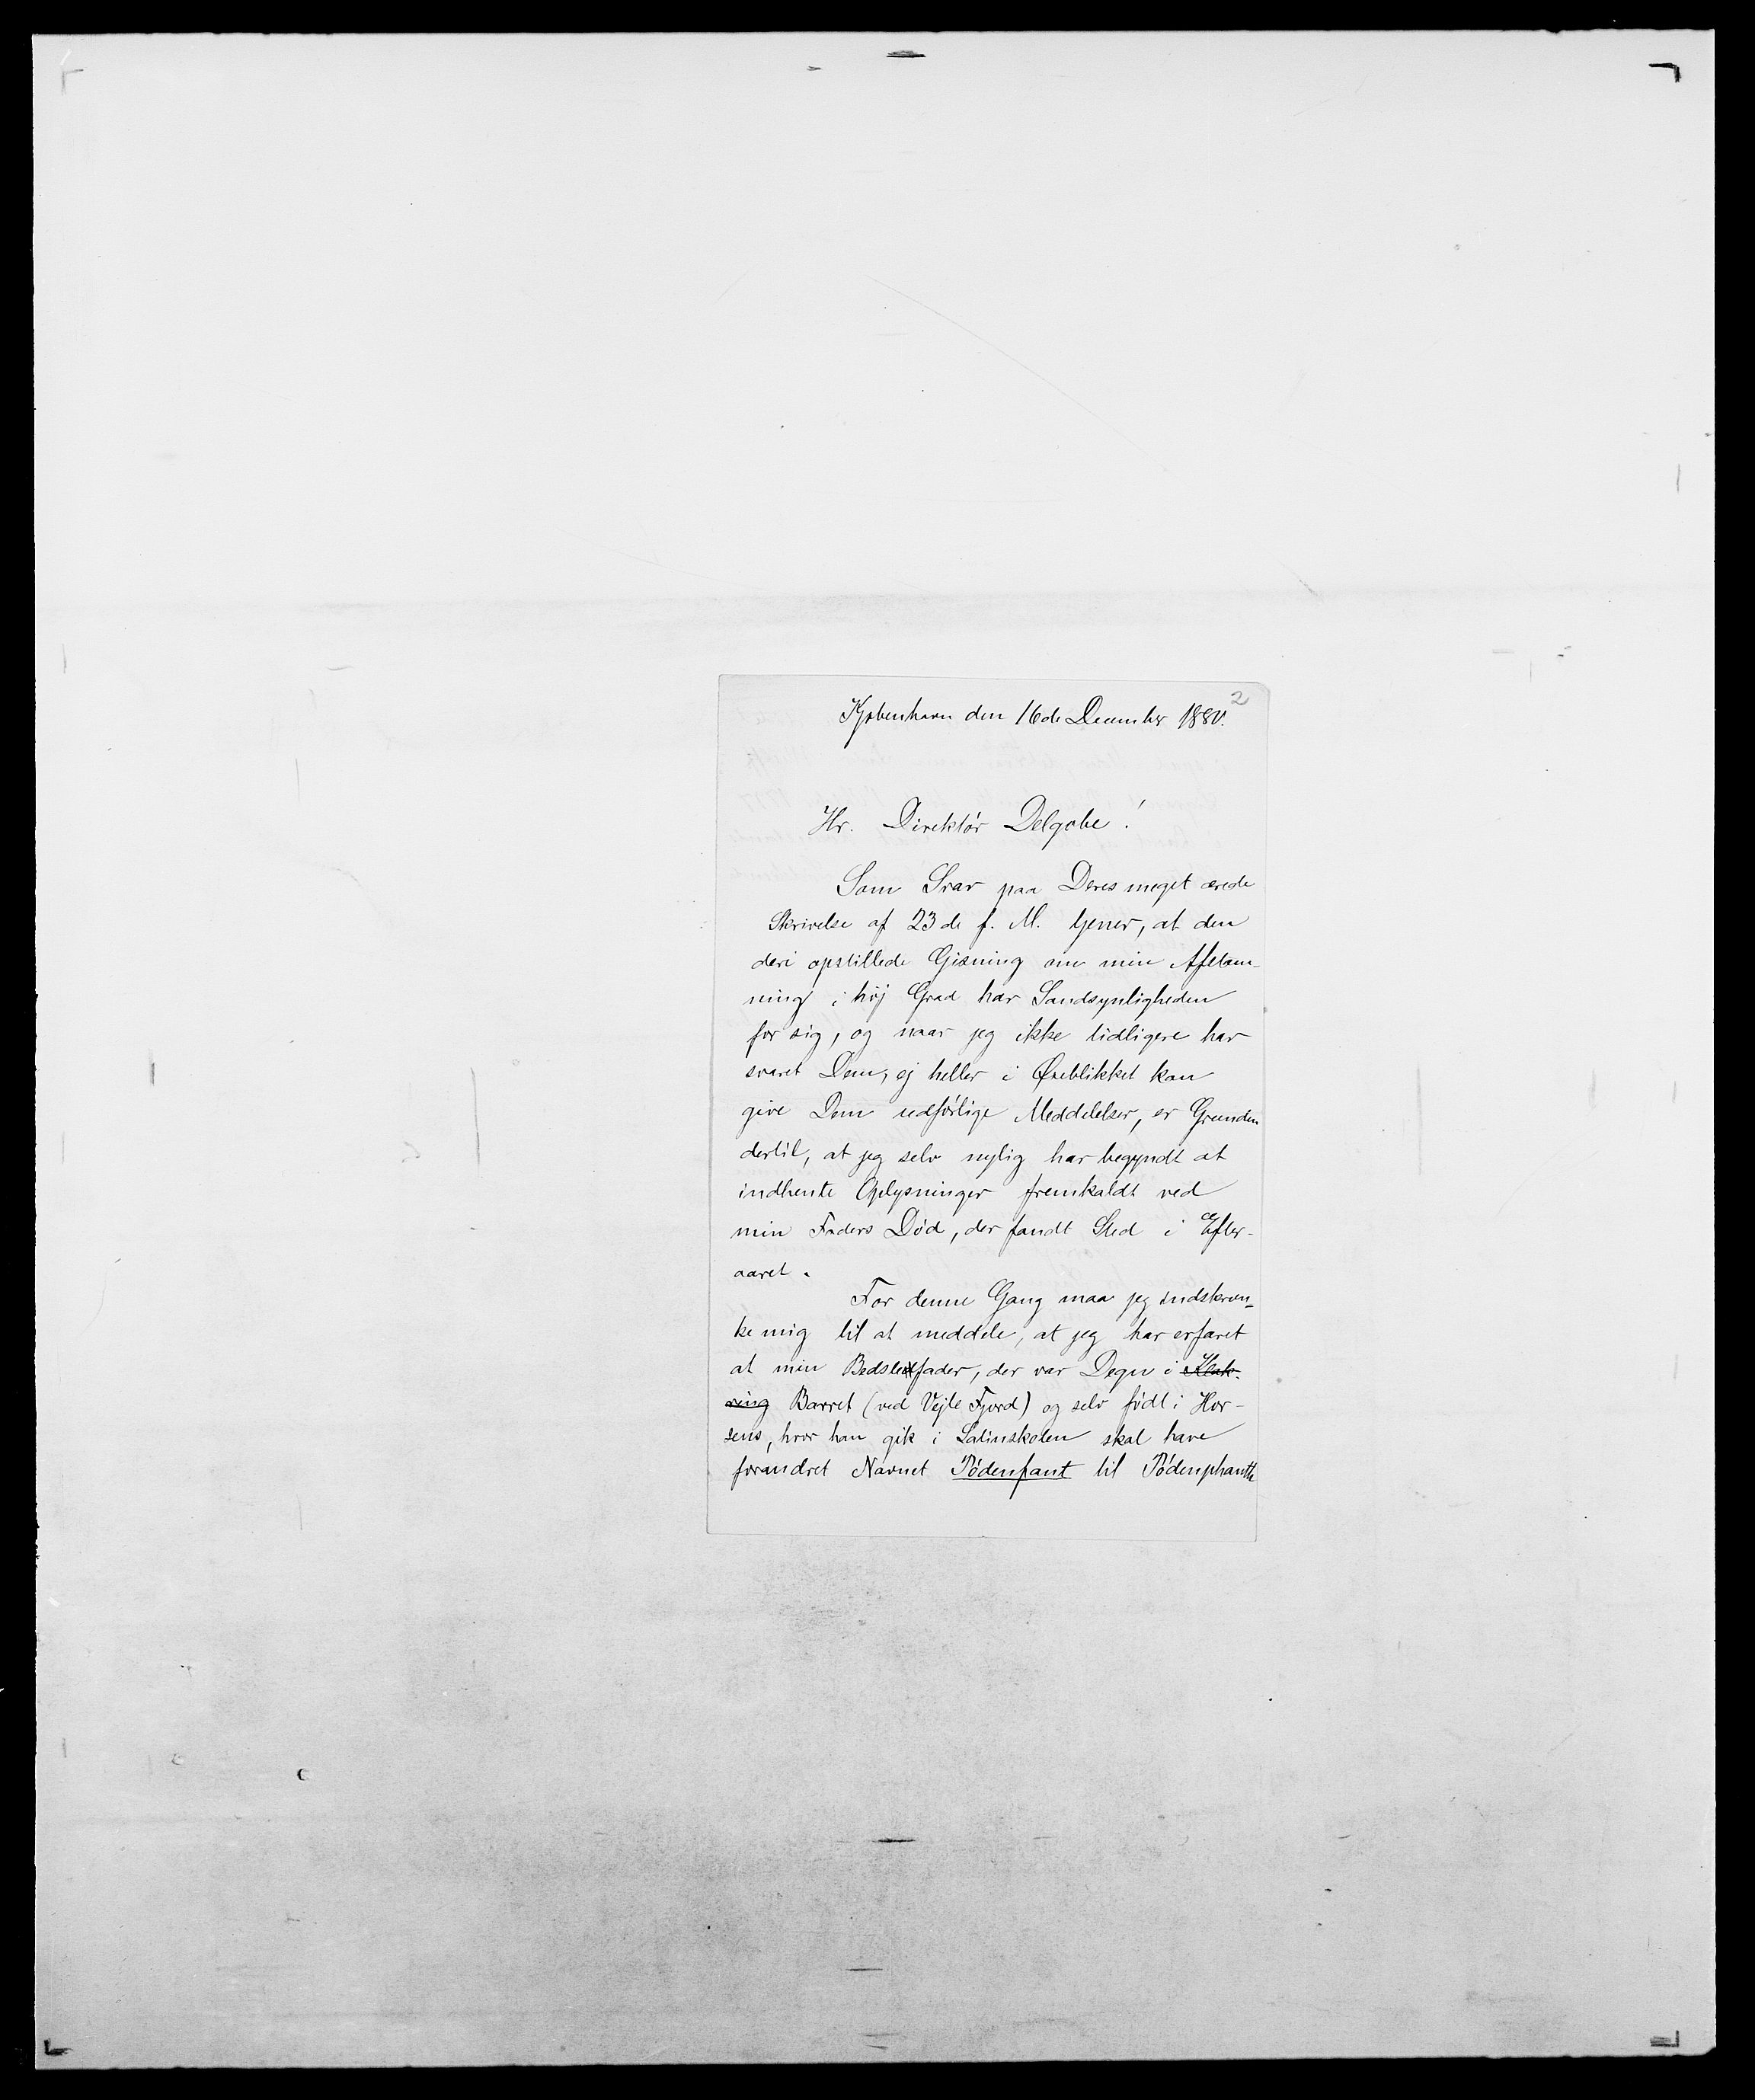 2
Kjøbenhavn den 16de December 1880.
Hr. Direktör Delgobe!
Som Svar paa Deres meget ærede
Skrivelse af 23de f. M. tjener, at den
deri opstillede Gisning om min Afstam-
ning i höj Grad har Sandsynligheden
for sig, og naar jeg ikke tidligere har
svaret Dem, ej heller i Øieblikket kan
give Dem udförlige Meddelelser, er Grunden
dertil, at jeg selv nylig har begyndt at
indhente Oplysninger fremkaldt ved
min Faders Död, der fandt Sted i Efter-
aaret.
For denne Gang maa jeg indskræn-
ke mig til at meddele, at jeg har erfaret
at min Bedstefader, der var Degn i Klak-
ring Barret (ved Vejle Fjord) og selv födt i Hor-
sens, hvor han gik i Latinskolen skal have
forandret Navnet Pödenfant til Pödenphanth